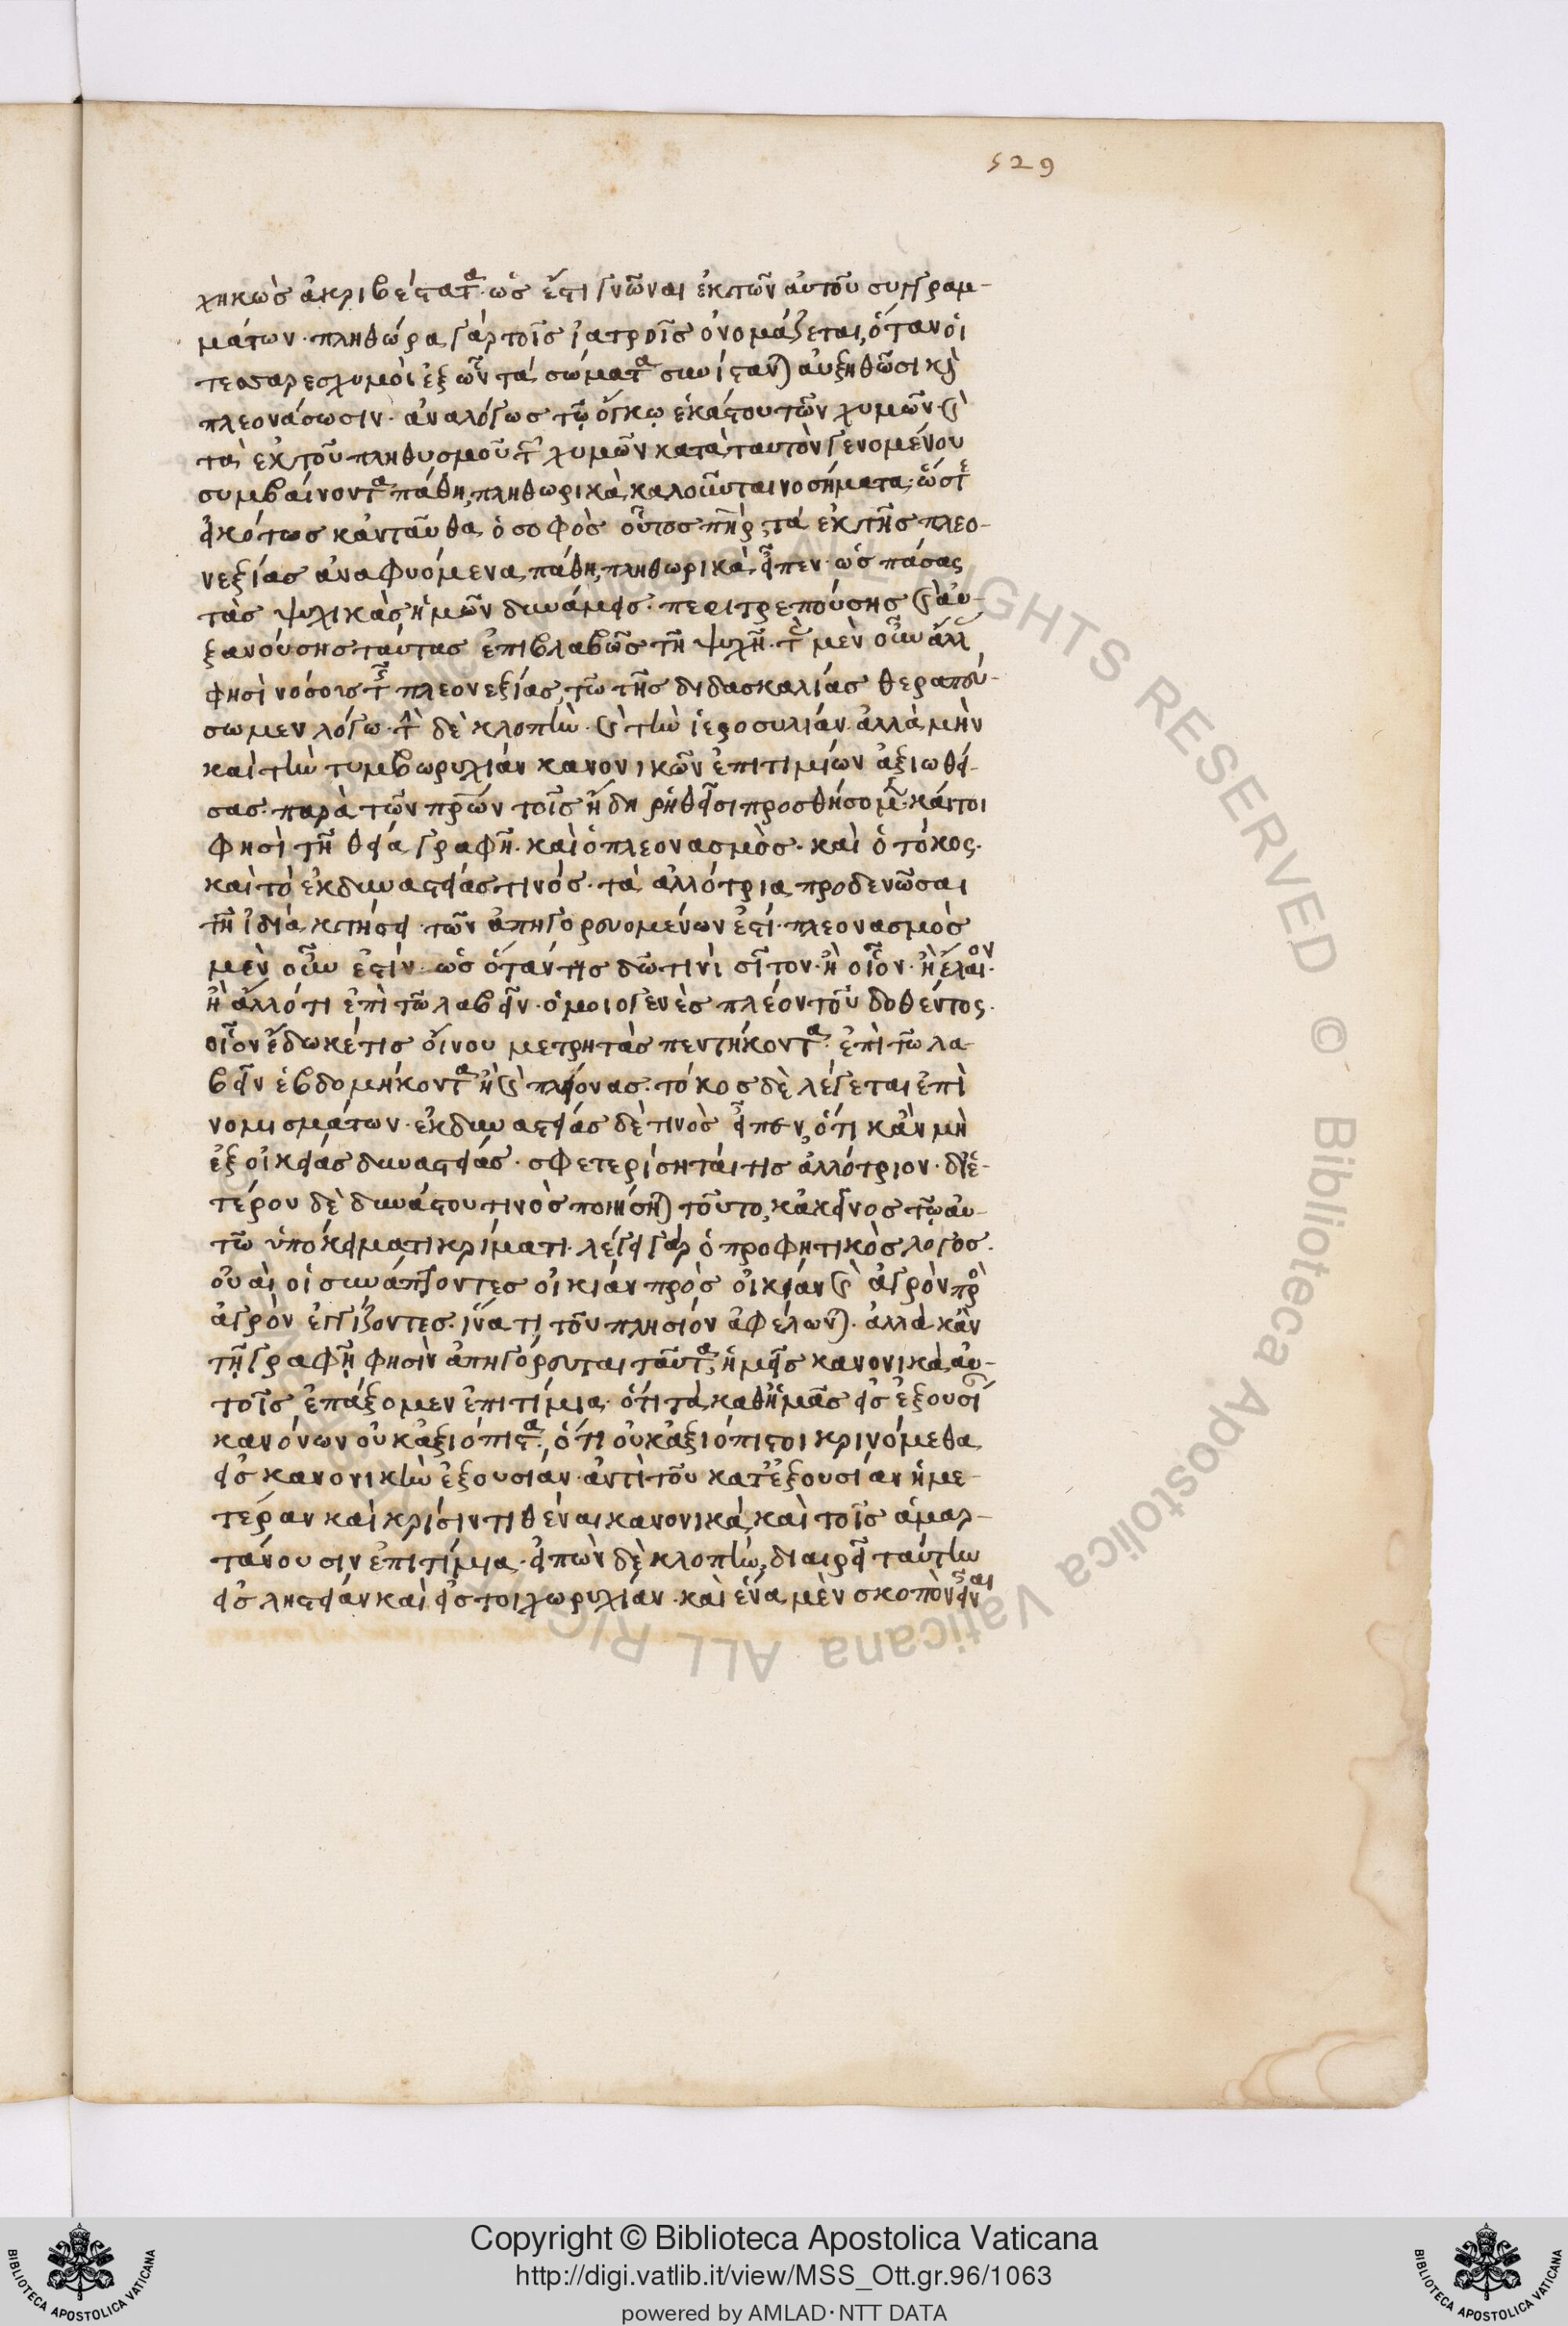 529
χηκὼς ἀκριβέστατα· ὡς ἔστι γνῶναι ἐκ τῶν αὐτοῦ συγγραμ-
μάτων· πληθώρα γὰρ τοῖς ἰατροῖς ὀνομάζεται, ὅταν οἱ
τέσσαρες χυμοὶ ἐξ ὧν τὰ σώματα συνίσταν) αὐξηθῶσι καὶ
πλεονάσωσιν· ἀναλόγως τῷ ὄγκῳ ἑκάστου τῶν χυμῶν· καὶ
τὰ ἐκ τοῦ πληθυσμοῦ τῶν χυμῶν κατὰ ταυτὸν γενομένου
συμβαίνοντα πάθη, πληθωρικὰ καλοῦνται νοσήματα· ὥστε
εἰκότως κἀνταῦθα ὁ σοφὸς οὗτος πηρ, τὰ ἐκ τῆς πλεο-
νεξίας ἀναφυόμενα πάθη, πληθωρικὰ εἶπεν· ὡς πάσας
τὰς ψυχικὰς ἡμῶν δυνάμεις· περιτρεπούσης καὶ αὐ-
ξανούσης ταύτας ἐπιβλαβῶς τῇ ψυχῇ· τὰς μὲν οὖν ἄλλ
φησὶ νόσοις τῆς πλεονεξίας, τῶ τῆς διδασκαλίας θεραπεύ-
σωμεν λόγω· τὴν δὲ κλοπὴν· καὶ τὴν ἱεροσυλίαν· ἀλλὰ μὴν
καὶ τὴν τυμβωρυχίαν κανονικῶν ἐπιτιμίων ἀξιωθεί-
σας· παρὰ τῶν πρων τοῖς ἤδη ῥηθεῖσι προσθήσομεν· καίτοι
φησὶ τῇ θεία γραφῇ· καὶ ὁ πλεονασμὸς· καὶ ὁ τόκος·
καὶ τὸ ἐκ δυναστείας τινός· τὰ ἀλλότρια προδενῶσαι
τῇ ἰδία κτήσει· τῶν ἀπηγορευομένων ἐστί· πλεονασμὸς
μὲν οὖν ἐστίν· ὡς ὅταν τις δῶ τινὶ σῖτον· ἢ οἶον· ἢ ἔλαιον·
ἢ ἄλλό τι ἐπὶ τῶ λαβεῖν· ὁμοιογενὲς πλέον τοῦ δοθέντος·
οἷον ἔδωκέ τις οἴνου μετρητὰς πεντήκοντα· ἐπὶ τῶ λα-
βεῖν ἑβδομήκοντα ἢ καὶ πλείονας· τόκος δὲ λέγεται ἐπὶ
νομισμάτων· ἐκ δυναστείας δὲ τινὸς εἶπεν, ὅτι κἂν μὴ
ἐξ οἰκείας δυναστείας· σφετερίσηταί τις ἀλλότριον· δι' ἑ-
τέρου δὲ δυνάστου τινὸς ποιήση) τοῦτο, κἀκεῖνος τῷ αὐ-
τῶ ὑπόκειματι κρίματι· λέγει γὰρ ὁ προφητικὸς λόγος·
οὐαὶ οἱ συνάπτοντες οἰκίαν πρὸς οἰκίαν καὶ ἀγρὸν πρὸς
ἀγρὸν ἐγγίζοντες· ἵνά τι τοῦ πλησίον ἀφέλων)· ἀλλὰ κἂν
τῇ γραφῇ φησὶν ἀπηγόρευται ταῦτα, ἡμεῖς κανονικὰ αὐ-
τοῖς ἐπάξομεν ἐπιτίμια· ὅτι τὰ καθ' ἡμᾶς εἰς ἐξουσίαν
κανόνων οὐκ ἀξιόπιστα· ὅτι οὐκ ἀξιόπιστοι κρινόμεθα
εἰς κανονικὴν ἐξουσίαν· ἀντὶ τοῦ κατ' ἐξουσίαν ἡμε-
τέραν καὶ κρίσιν τιθέναι κανονικὰ καὶ τοῖς ἁμαρ-
τάνουσιν ἐπιτίμια· εἰπὼν δὲ κλοπὴν, διαιρεῖ ταύτην
εἰς ληστείαν καὶ εἰς τοιχωρυχίαν· καὶ ἕνα μὲν σκοπὸν εἶναι
Copyright © Biblioteca Apostolica Vaticana
http://digi.vatlib.it/view/MSS_Ott.gr.96/1063
powered by AMLAD·NTT DATA